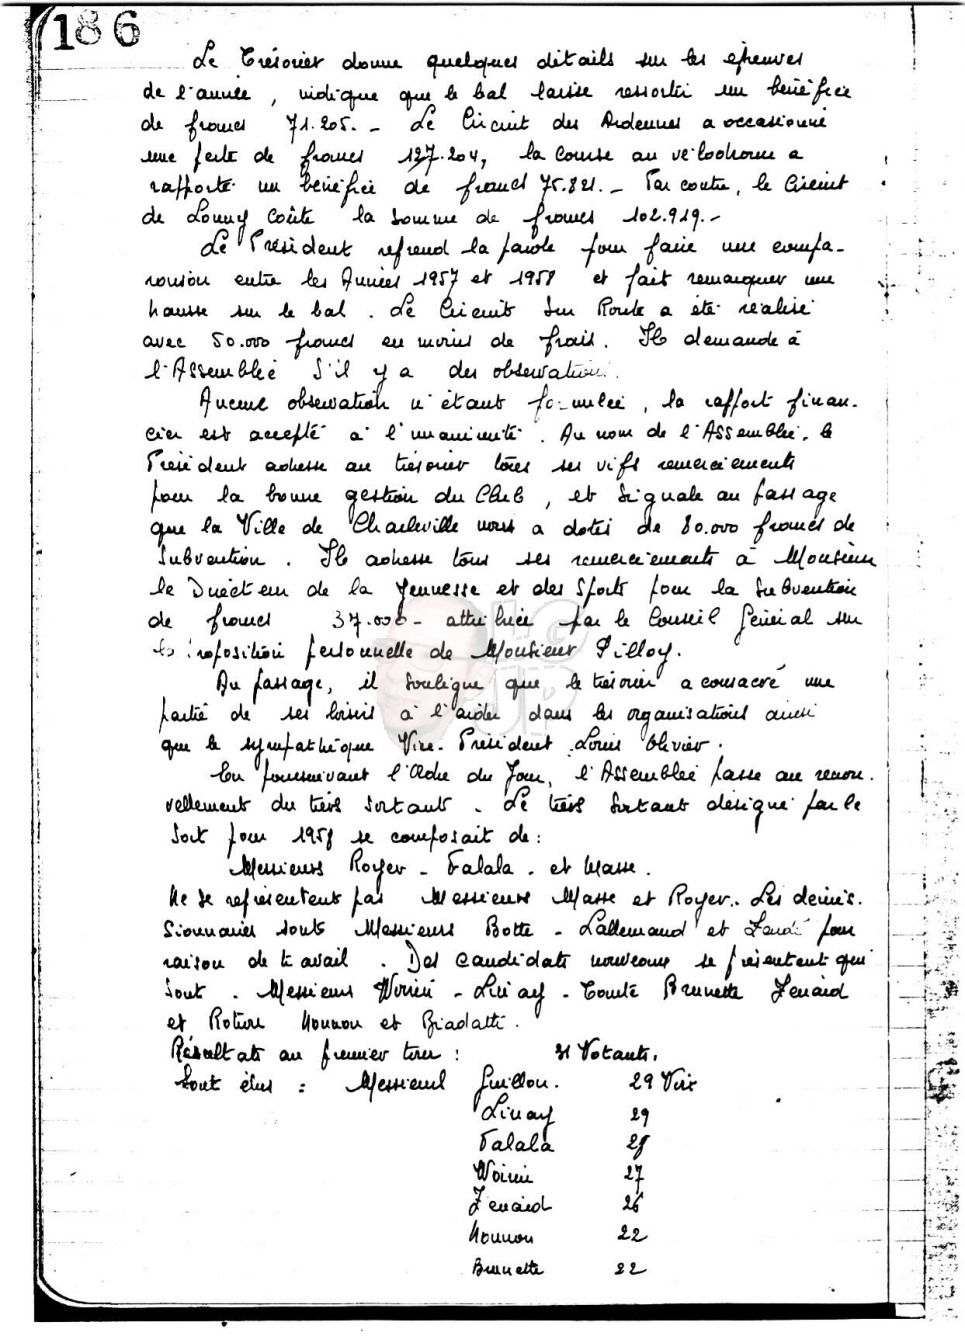 186
Le Trésorier donne quelques détails sur les épreuves
de l'année, indique que le bal laisse ressortir un bénéfice
de francs 71.205.- Le Circuit des Ardennes a occasionné
une perte de francs 127.204, la course au vélodrome a
rapporté un bénéfice de francs 75.821.- Par contre, le Circuit
de Lonny coûte la somme de francs 102.929.-
Le Président reprend la parole pour faire une compa-
raison entre les Années 1957 et 1958 et fait remarquer une
hausse sur le bal. Le Circuit sur Route a été réalisé
avec 50.000 francs en moins de frais. Il demande à
l'Assemblée s'il y a des observations.
Aucune observation n'étant formulée, le rapport finan-
cier est accepté à l'unanimité. Au nom de l'Assemblée, le
Président adresse au trésorier tous ses vifs remerciements
pour la bonne gestion du Club, et signale au passage
que la Ville de Charleville nous a dotés de 80.000 francs de
Subvention. Il adresse tous ses remerciements à Monsieur
le Directeur de la Jeunesse et des Sports pour la Subvention
de francs 37.000- attribuée par le Conseil Général sur
la proposition personnelle de Monsieur Pilloy.
Au passage, il souligne que le trésorier a consacré une
partie de ses loisirs à l'aider dans les organisations ainsi
que le sympathique Vice-Président Louis Olivier.
En poursuivant l'Ordre du Jour, l'Assemblée passe au renou-
vellement du tiers sortant. Le tiers Sortant désigné par le
Sort pour 1958 se composait de :
Messieurs Royer - Falala - et Masse.
Ne se représentent pas Messieurs Masse et Royer. Les démis-
sionnaires sont Messieurs Botte - Lallemand et pour
raison de travail. Des candidats nouveaux se présentent qui
sont. Messieurs Woirin - Linay - Comté Brunette Zenard
et Roture Nounou et Biadatti.
Résultats au premier tour : 31 Votants.
Sont élus : Messieurs Guillou. 29 Voix
Linay 29
Falala 28
Woirin 27
Zenard 26
Nounou 22
Brunette 22